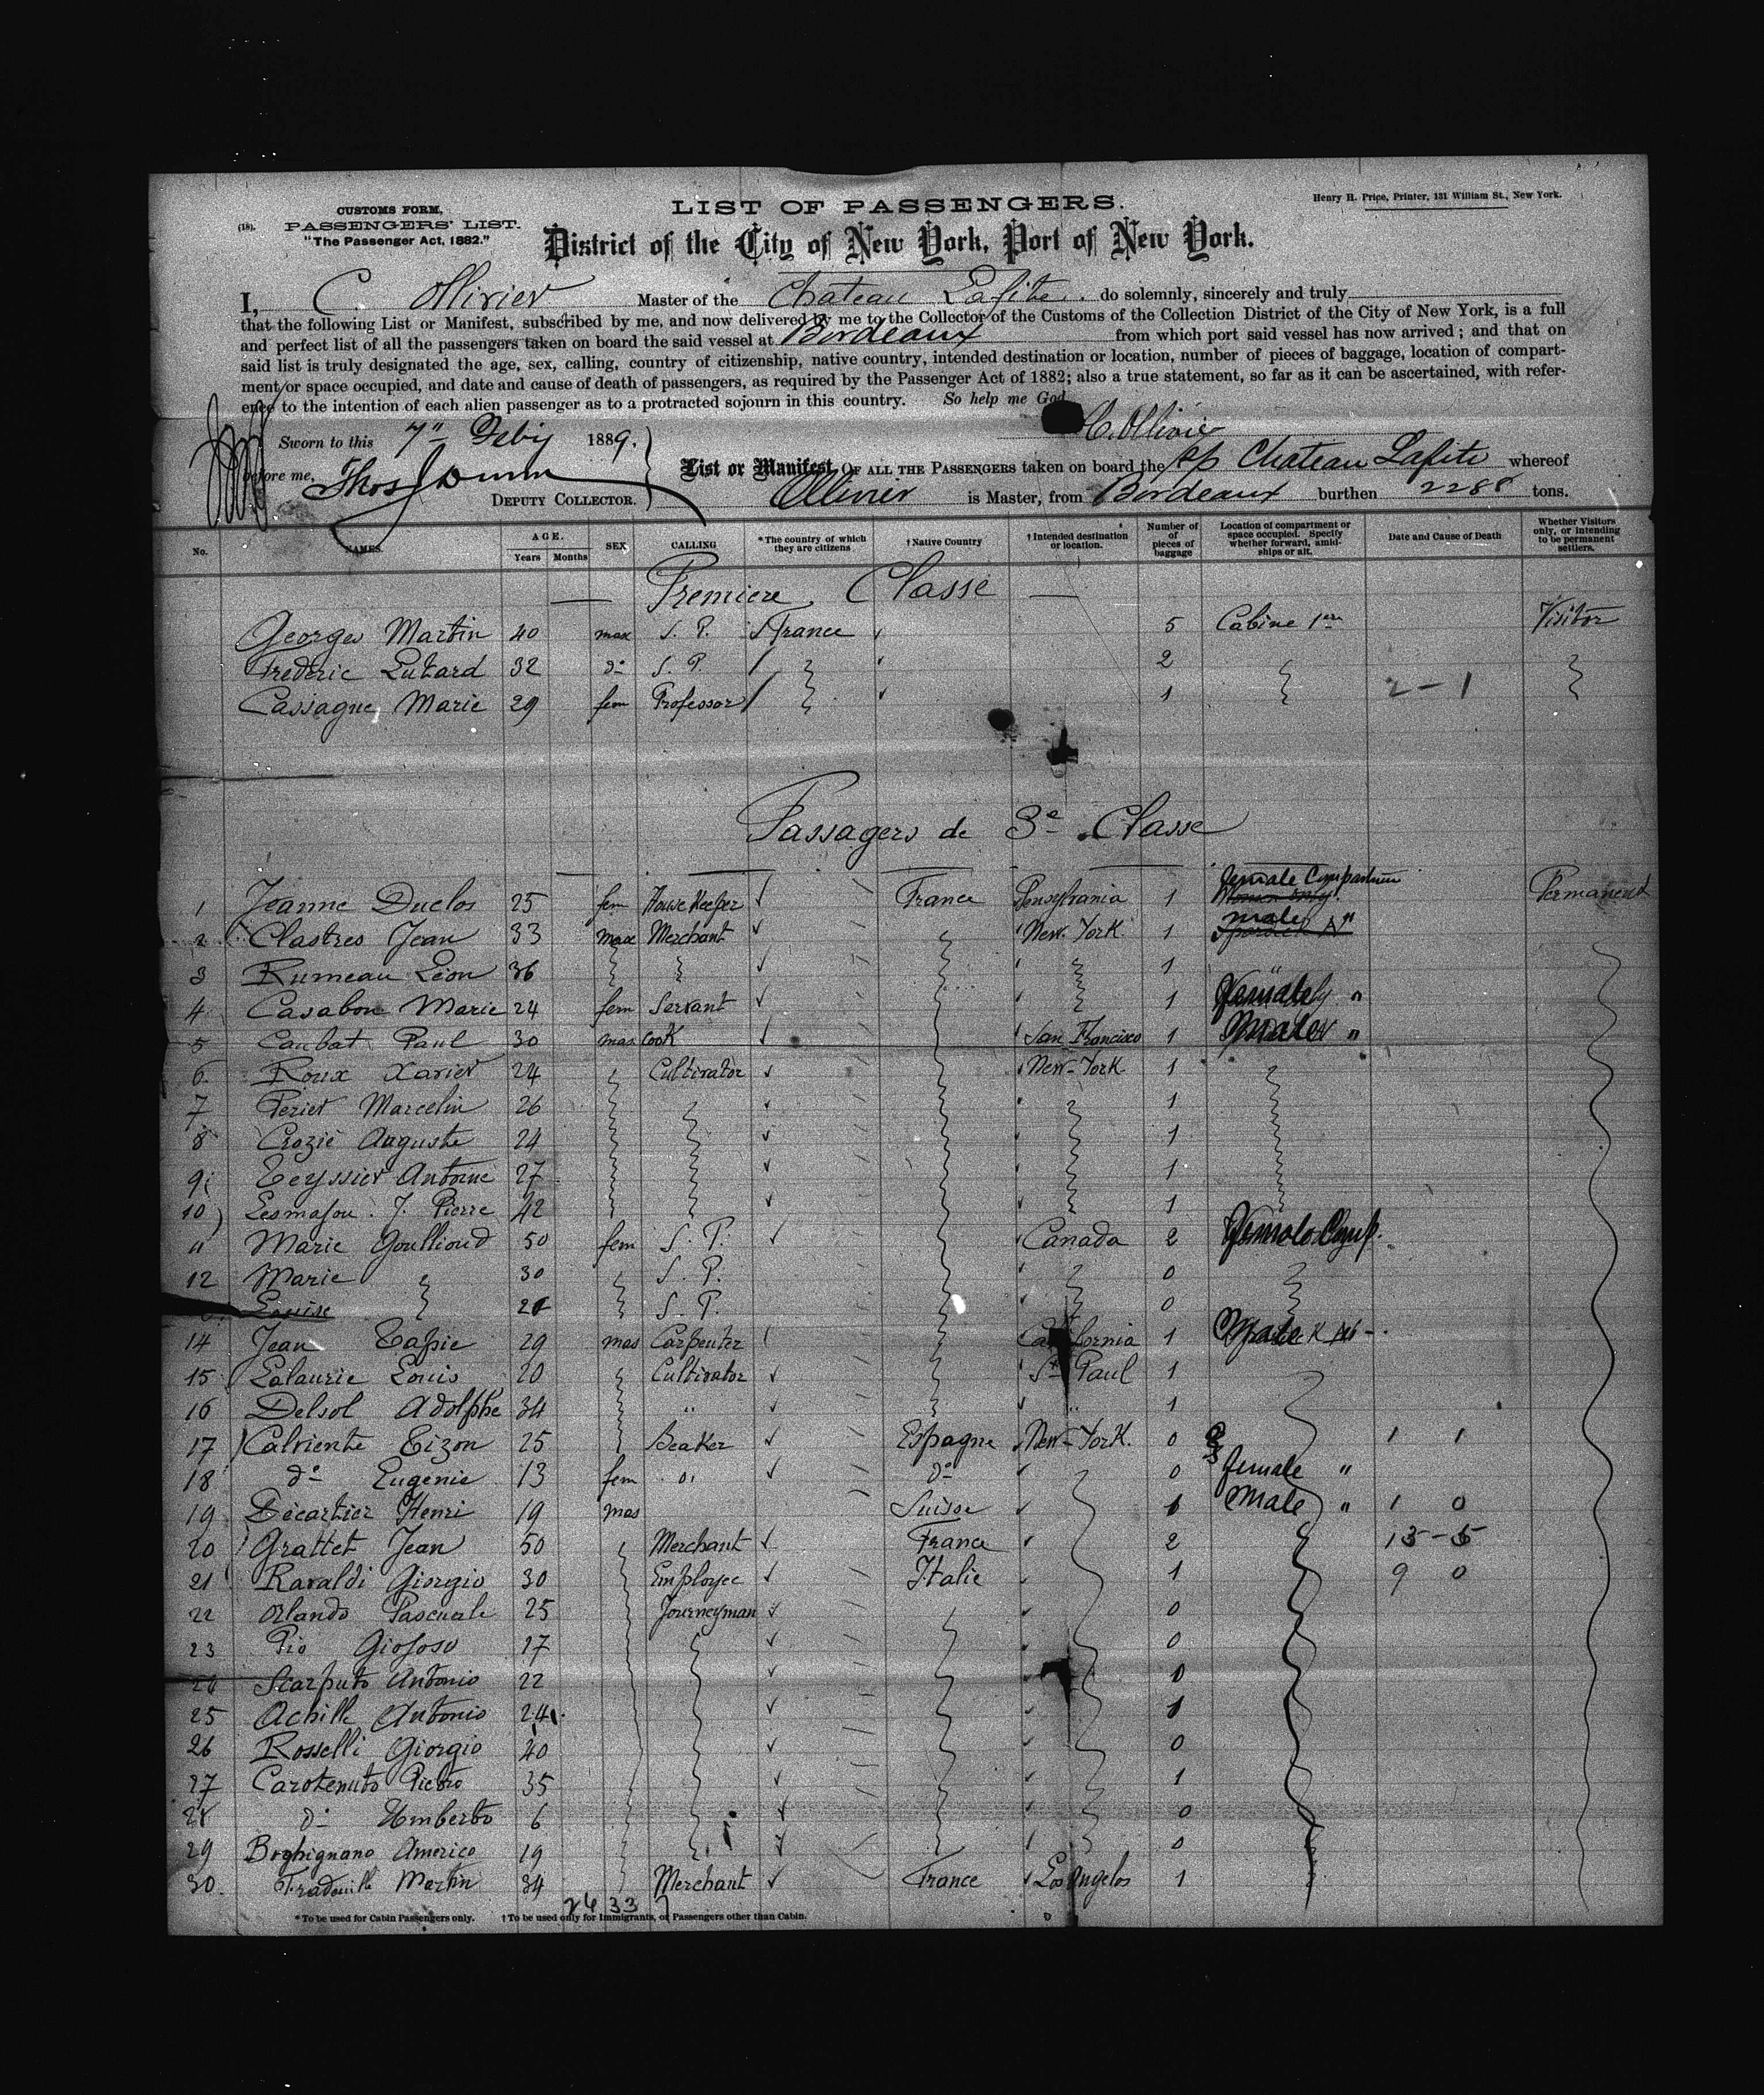 CUSTOMS FORM,
(18). PASSENGERS' LIST.
"The Passenger Act, 1882."
LIST OF PASSENGERS.
Henry H. Price, Printer, 131 William St., New York.
District of the City of New York, Port of New York.
I, C. Ollivier Master of the Chateau Lafite. do solemnly, sincerely and truly
that the following List or Manifest, subscribed by me, and now delivered by me to the Collector of the Customs of the Collection District of the City of New York, is a full
and perfect list of all the passengers taken on board the said vessel at Bordeaux from which port said vessel has now arrived; and that on
said list is truly designated the age, sex, calling, country of citizenship, native country, intended destination or location, number of pieces of baggage, location of compart-
ment or space occupied, and date and cause of death of passengers, as required by the Passenger Act of 1882; also a true statement, so far as it can be ascertained, with refer-
ence to the intention of each alien passenger as to a protracted sojourn in this country. So help me God
C. Ollivier
Sworn to this 7" Feby 1889.
before me, Thos J Dunn
DEPUTY COLLECTOR.
List or Manifest OF ALL THE PASSENGERS taken on board the Chateau Lafite whereof
Ollivier is Master, from Bordeaux burthen 2288 tons.
No. NAMES. AGE. Years Months SEX CALLING *The country of which they are citizens †Native Country †Intended destination or location. Number of pieces of baggage Location of compartment or space occupied. Specify whether forward, amid-ships or aft. Date and Cause of Death Whether Visitors only, or intending to be permanent settlers.
Premiere Classe
Georges Martin 40 mas S. P. France 5 Cabine 1ere Visitor
Frederic Lutard 32 do S. P. 2
Cassagne Marie 29 fem Professor 1 2-1
Passagers de 3e Classe
1 Jeanne Duclos 25 fem House Keeper France Pensylvania 1 female Compartment Permanent
2 Clastres Jean 33 mas Merchant New-York 1 male "
3 Rumeau Léon 36 1
4 Casabon Marie 24 fem Servant 1 Female "
5 Caubat Paul 30 mas Cook San Francisco 1 Male "
6 Roux Xavier 24 Cultivator New-York 1
7 Perier Marcelin 26 1
8 Crozié Auguste 24 1
9 Teyssier Antoine 27 1
10 Lesmasou. J. Pierre 42 1
11 Marie Goullioud 50 fem S. P. Canada 2 Female Comp.
12 Marie 30 S. P. 0
Louise S. P. 0
14 Jean Tapie 29 mas Carpenter California 1 Male
15 Lalaurie Louis 20 Cultivator St Paul 1
16 Delsol Adolphe 34 " " 1
17 Calviente Tizon 25 Beaker Espagne New-York. 0 1 1
18 do Eugenie 13 fem do 0 female "
19 Decartier Henri 19 mas Suisse 1 Male " 1 0
20 Grattet Jean 50 Merchant France 2 13-5
21 Ravaldi Giorgio 30 Employee Italie 1 9 0
22 Orlando Pascuale 25 Journeyman 0
23 Pio Giososo 17 0
24 Scarputo Antonio 22 1
25 Achille Antonio 24 1
26 Rosselli Giorgio 40 0
27 Carotenuto Pietro 35 1
28 do Umberto 6 0
29 Borhignano Americo 19 0
30. Martin 34 Merchant France Los Angelos 1
26 33 7
*To be used for Cabin Passengers only. †To be used only for Immigrants, or Passengers other than Cabin.